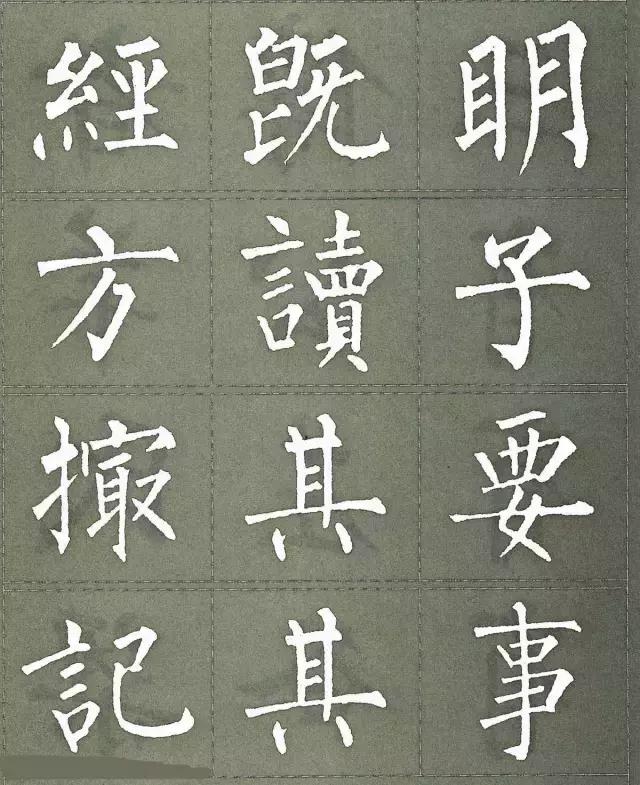 經既眀
方讀子
撮其要
記其事